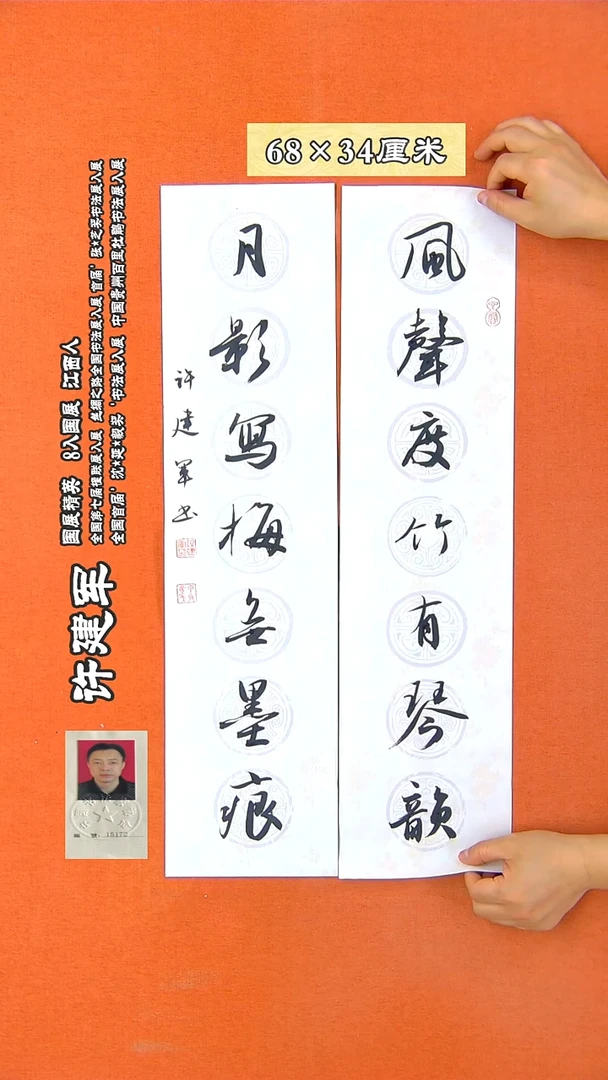 68×34厘米
風聲度竹有琴韻
月影寫梅無墨痕
许建军书
许建军
国展精英 8入国展 江西人
全国第七届楹联展入展 丝绸之路全国书法展入展 首届‘张★芝奖书法展入展
全国首届‘沈★延★毅奖‘书法展入展 中国贵州百里杜鹃书法展入展
15172